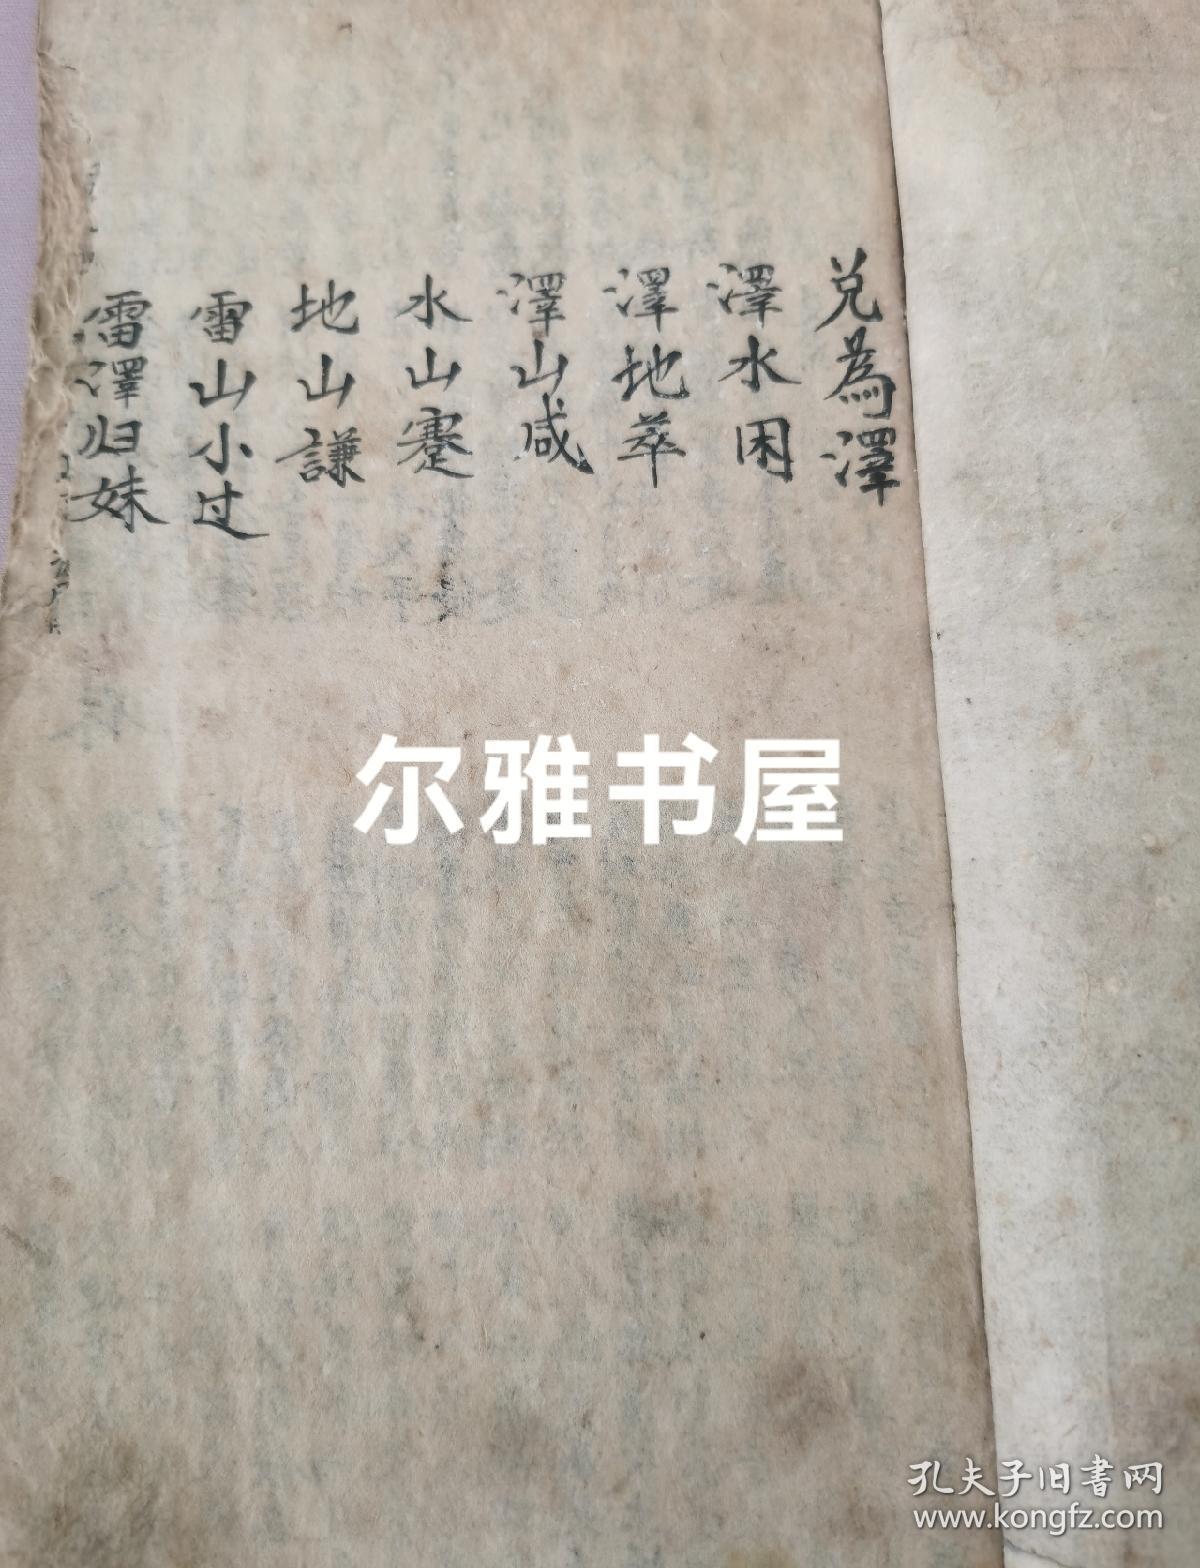 兑為澤
澤水困
澤地萃
澤山咸
水山蹇
地山謙
雷山小过
雷澤归妹
尔雅书屋
孔夫子旧书网
www.kongfz.com